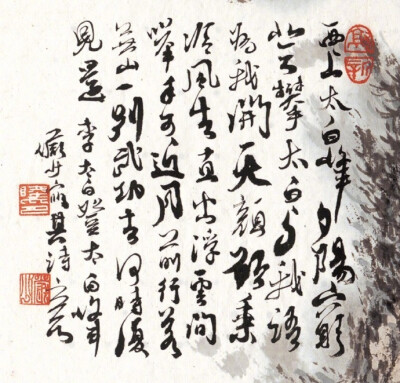 西上太白峰夕陽窮
登攀太白与我語
為我開天關願乘
泠風去直出浮雲間
舉手可近月前行若
無山一別武功去何時復
見還 李太白登太白峰